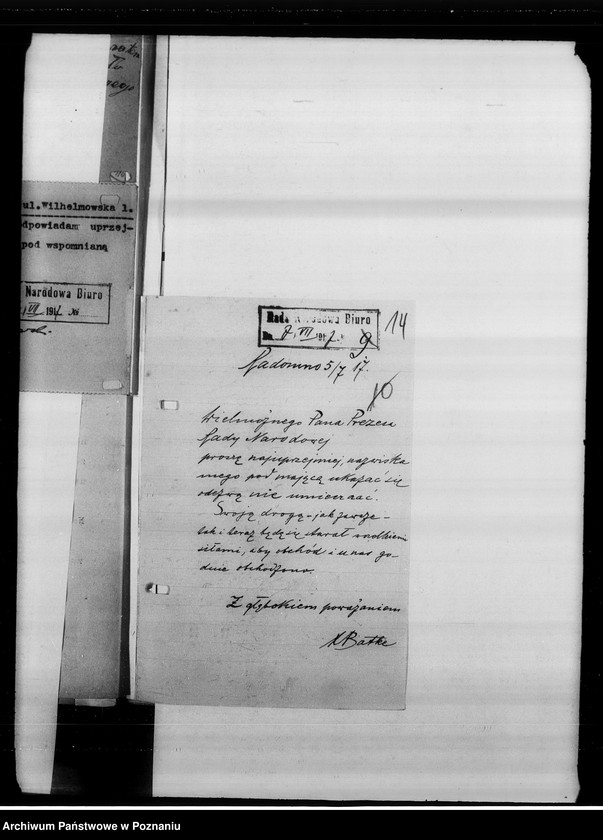 ul. Wilhelmowska 1.
dpowiadam uprzej-
pod wspomnianą
Narodowa Biuro
VII 1917 №
Rada Narodowa Biuro
7 VII 1917. 9
14
Radomno 5/7 17.
10
Wielmożnego Pana Prezesa
Rady Narodowej
proszę najuprzejmiej, nazwiska
mego pod mającą ukazać się
odezwą nie umieszczać.
Swoją drogą - jak zawsze -
tak i teraz będę się starał wszelkiemi
siłami, aby obchód i u nas go-
dnie obchodzono.
Z głębokiem poważaniem
Batke
Archiwum Państwowe w Poznaniu